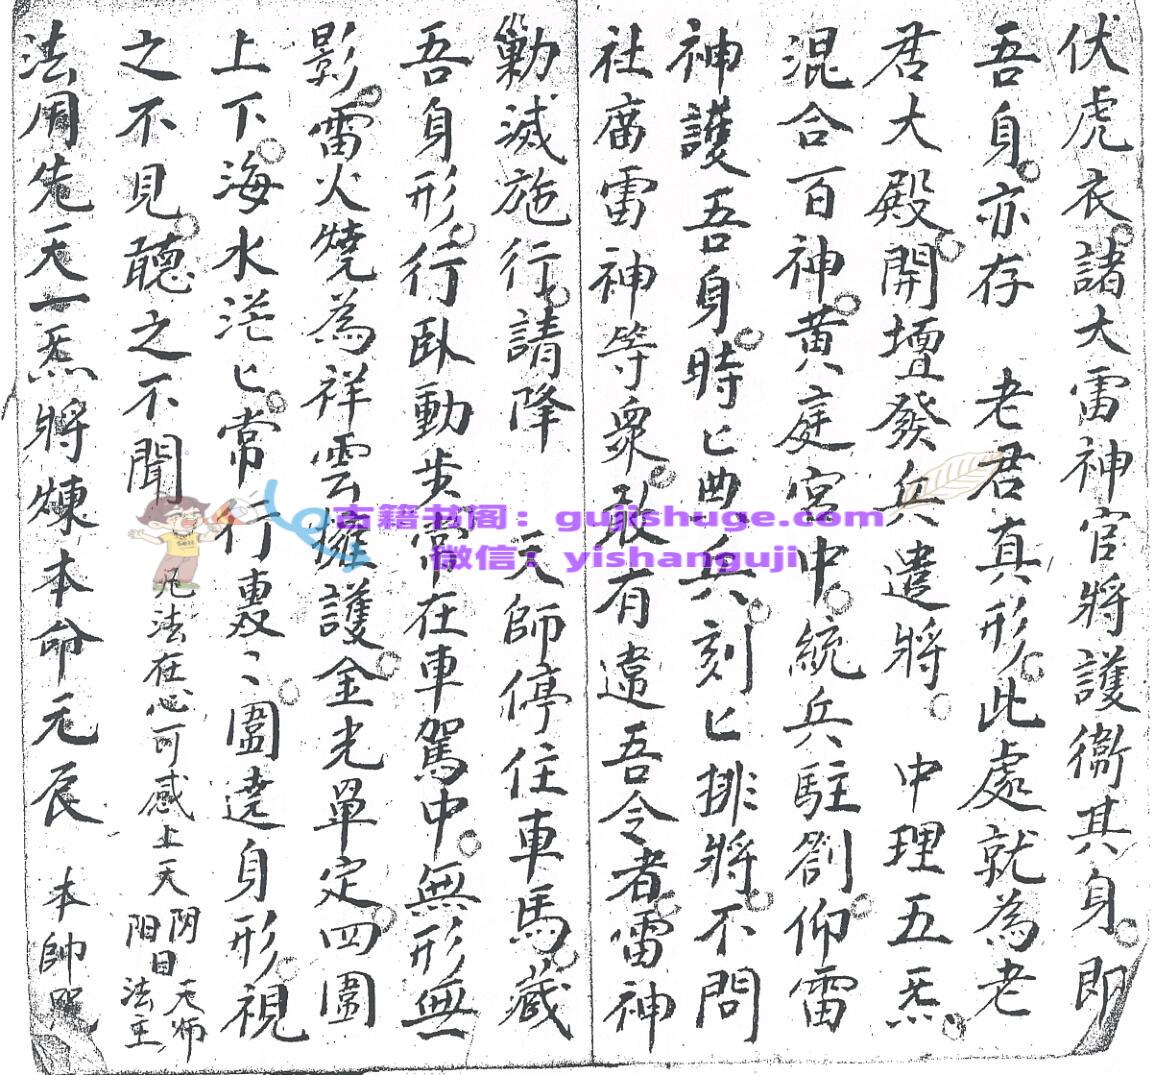 伏虎衣諸大雷神官將護衛其身即
吾身亦存　老君真形此處就為老
君大殿開壇發兵遣將　中理五炁
混合百神黃庭宮中統兵駐劄仰雷
神護吾身時匕典兵刻匕排將不問
社廟雷神等眾敢有違吾令者雷神
勦滅施行請降　天師停住車馬藏
吾身形行臥動步常在車駕中無形無
影雷火燒為祥雲擁護金光罩定四圍
上下海水茫匕常行轟〻圍遶身形視
之不見聽之不聞　凡法在心可感上天　陰陽日　天師法主
法用先天一炁將煉本命元辰　本帥咒
古籍书阁：gujishuge.com
微信：yishanguji